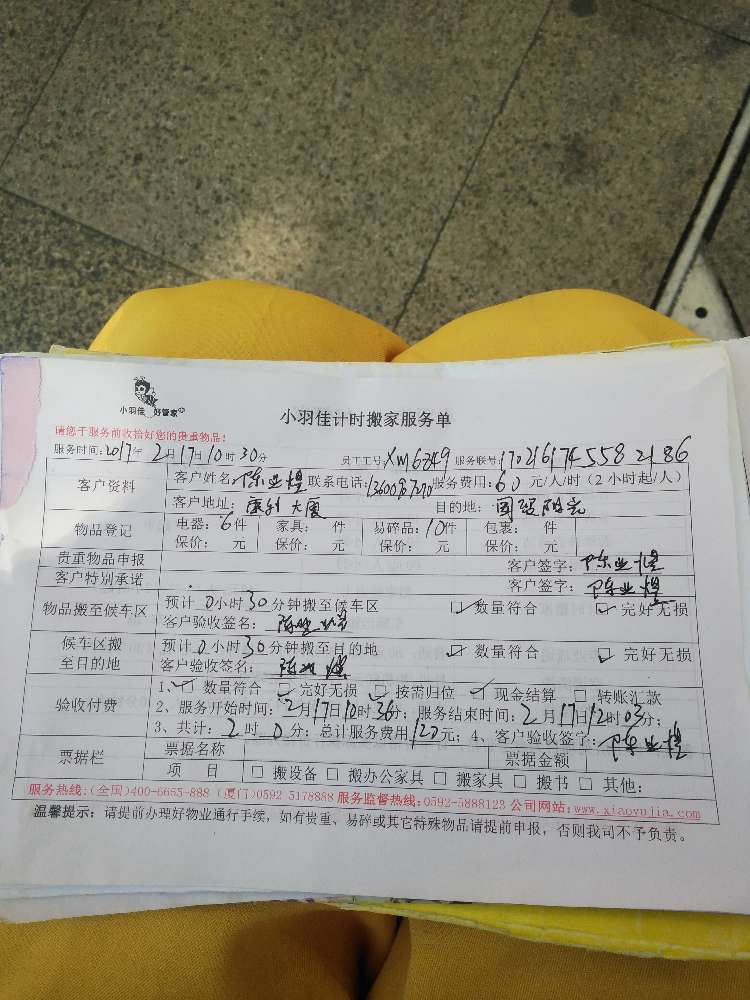 小羽佳 好管家
小羽佳计时搬家服务单
请您于服务前收拾好您的贵重物品!
服务时间:2017年2月17日10时30分 员工工号:XM6349 服务联号:1702161745582186
客户资料 客户姓名:陈业煌 联系电话: 服务费用:60元/人/时(2小时起/人)
客户地址:康利大厦 目的地:国强阳光
物品登记 电器:6件 家具: 件 易碎品:10件 包裹: 件
保价: 元 保价: 元 保价: 元 保价: 元
贵重物品申报 客户签字:陈业煌
客户特别承诺 客户签字:陈业煌
物品搬至候车区 预计0小时30分钟搬至候车区 ☑数量符合 ☑完好无损
客户验收签名:陈业煌
候车区搬至目的地 预计0小时30分钟搬至目的地 ☑数量符合 ☑完好无损
客户验收签名:陈业煌
验收付费 1、☑数量符合 ☑完好无损 ☑按需归位 ☑现金结算 □转账汇款
2、服务开始时间:2月17日10时36分;服务结束时间:2月17日12时03分;
3、共计:2时0分;总计服务费用120元;4、客户验收签字:陈业煌
票据栏 票据名称 票据金额
项 目 □搬设备 □搬办公家具 □搬家具 □搬书 □其他:
服务热线:(全国)400-6685-888 (厦门)0592 5178888 服务监督热线:0592-5888123 公司网站:www.xiaoyujia.com
温馨提示:请提前办理好物业通行手续,如有贵重、易碎或其它特殊物品请提前申报,否则我司不予负责。